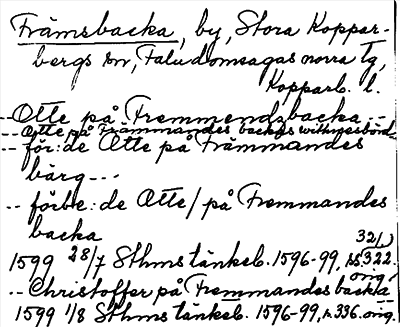 Främsbacka, by, Stora Koppar-
bergs sn, Falu domsagas norra tg,
Kopparb. l.
-- Otte på Fremmendsbacka --
-- Otte på Främmandes backes withnesbörd
-- för: de Otte på Främmandes
bärg ---
-- förbe: de Otte / på Fremmandes
backa
1599 28/7 Sthms tänkeb. 1596-99, s. 322. orig.
-- Christoffer på Fremmandes backa --
1599 1/8 Sthms tänkeb. 1596-99, s. 336. orig.